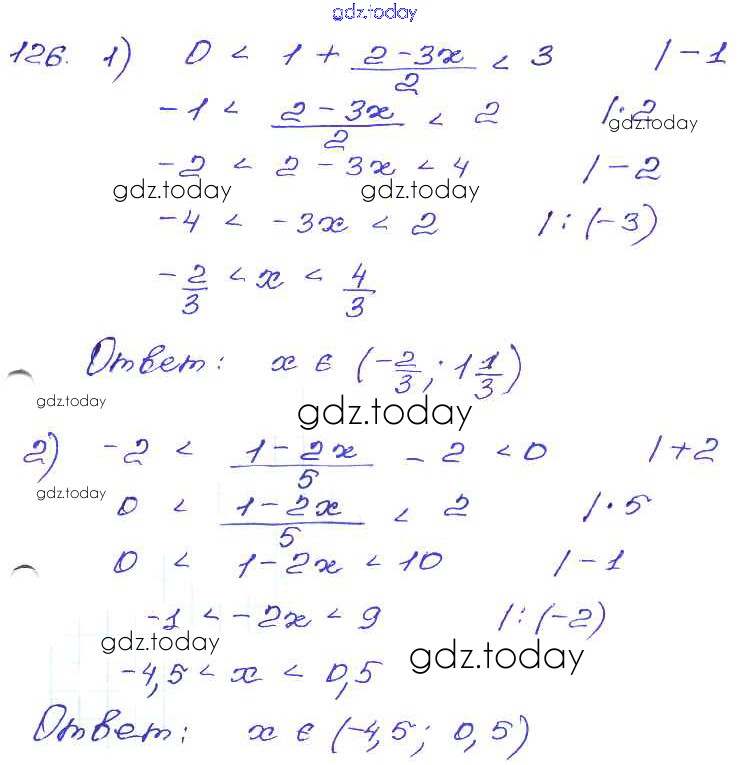 gdz.today
126. 1) 0 < 1 + (2 - 3x)/2 < 3 | - 1
-1 < (2 - 3x)/2 < 2 | · 2
gdz.today
-2 < 2 - 3x < 4 | - 2
gdz.today gdz.today
-4 < -3x < 2 | : (-3)
-2/3 < x < 4/3
Ответ: x ∈ (-2/3; 1 1/3)
gdz.today gdz.today
2) -2 < (1 - 2x)/5 - 2 < 0 | + 2
gdz.today
0 < (1 - 2x)/5 < 2 | · 5
0 < 1 - 2x < 10 | - 1
-1 < -2x < 9 | : (-2)
gdz.today gdz.today
-4,5 < x < 0,5
Ответ: x ∈ (-4,5; 0,5)